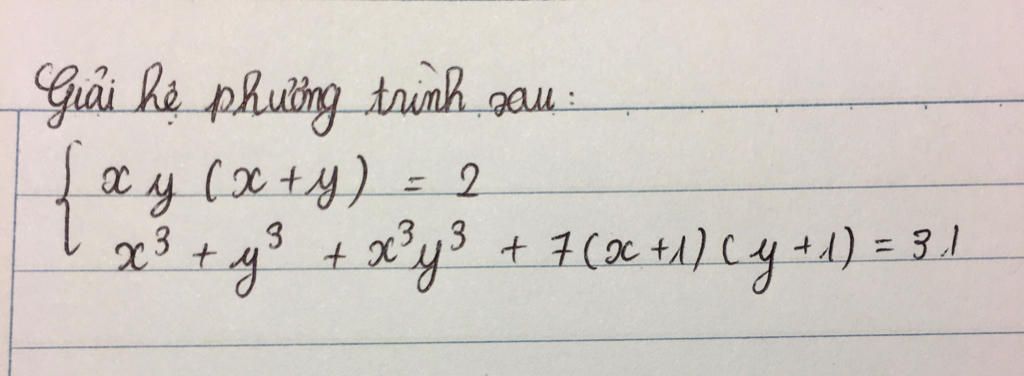 Giải hệ phương trình sau:
{ xy (x+y) = 2
x³ + y³ + x³y³ + 7(x+1)(y+1) = 31